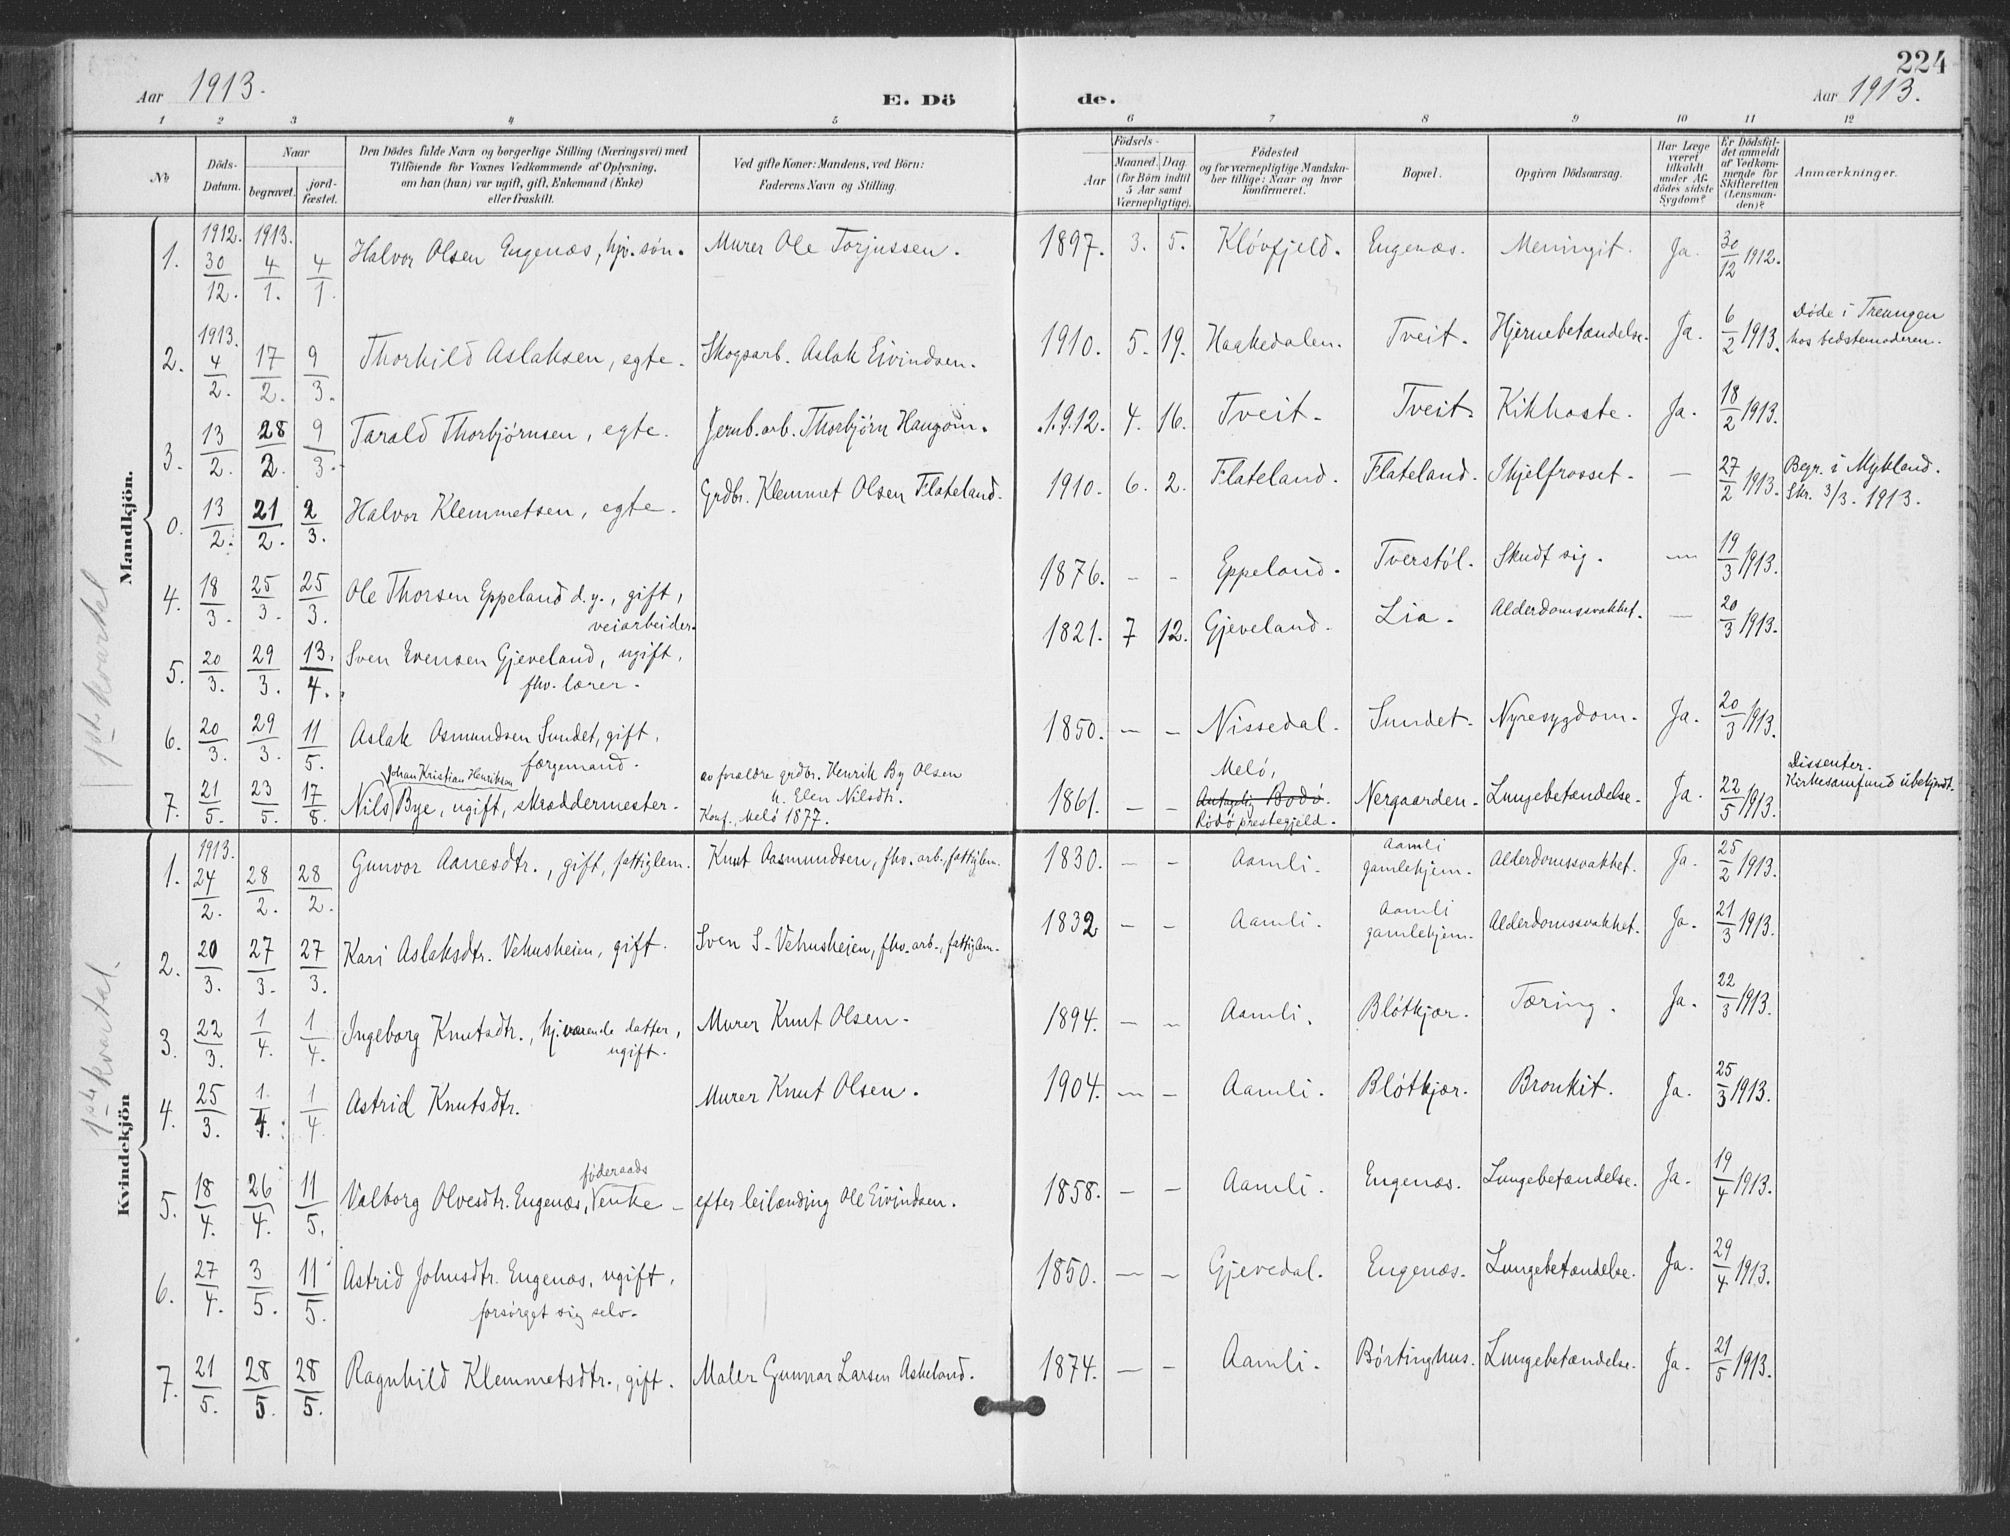 224
Aar 1913.
E. Dö de.
Aar 1913.
1 2 3 4 5 6 7 8 9 10 11 12
No
Döds-Datum.
Naar
begravet.
jord-fæstet.
Den Dödes fulde Navn og borgerlige Stilling (Næringsvei) med
Tilföiende for Voxnes Vedkommende af Oplysning,
om han (hun) var ugift, gift, Enkemand (Enke)
eller fraskilt.
Ved gifte Koner: Mandens, ved Börn:
Faderens Navn og Stilling.
Födsels-
Aar
Maaned. Dag.
(for Börn indtil
5 Aar samt
Værnepligtige).
Födested
og for værnepligtige Mandska-
ber tillige: Naar og hvor
konfirmeret.
Bopæl.
Opgiven Dödsaarsag.
Har Læge
været
tilkaldt
under Af-
dödes sidste
Sygdom?
Er Dödsfal-
det anmeldt
af Vedkom-
mende for
Skifteretten
(Lensman-
den)?
Anmærkninger.
Mandkjön.
1ste kvartal
1. 1912. 30/12. 1913. 4/1. 4/1 Halvor Olsen Engenæs, hjv. søn. Murer Ole Torjussen. 1897. 3. 5. Kløvfjeld. Engenæs. Meningit. Ja. 30/12 1912.
2. 1913. 4/2. 17/2. 9/3. Thorkild Aslaksen, egte. Skogsarb. Aslak Eivindsen. 1910. 5. 19. Haakedalen. Tveit. Hjernebetændelse. Ja. 6/2 1913. Døde i Treungen
hos bedstemoderen.
3. 13/2. 28/2. 9/3. Tarald Thorbjørnsen, egte. Jernb. arb. Thorbjørn Haugom. 1912. 4. 16. Tveit. Tveit. Kikhoste. Ja. 18/2 1913.
0. 13/2. 21/2. 2/3. Halvor Klemmetsen, egte. Grdbr. Klemmet Olsen Flateland. 1910. 6. 2. Flateland. Flateland. Skjelfrosset. — 27/2 1913. Begr. i Mykland.
Skr. 3/3. 1913.
4. 18/3. 25/3. 25/3. Ole Thorsen Eppeland d.y., gift,
veiarbeider. 1876. - - Eppeland. Tverstøl. Skudt sig. — 19/3 1913.
5. 20/3. 29/3. 13/4. Sven Evensen Gjeveland, ugift,
fhv. lærer. 1821. 7 12. Gjeveland. Lia. Alderdomssvakhet. — 20/3 1913.
6. 20/3. 29/3. 11/5. Aslak Asmundsen Sundet, gift,
færgemand. 1850. - - Nissedal. Sundet. Nyresygdom. Ja. 20/3 1913.
7. 21/5. 23/5. 17/8. Johan Kristian Henriksen
Nils Bye, ugift, skræddermester. av forældre grdbr. Henrik By Olsen
u. Elen Nilsdtr.
Konf. Melø 1877. 1861. - - Melø,
Bodø.
Rödö prestegjeld. Nergaarden. Lungebetændelse. Ja. 22/5 1913. Dissenter.
Kirkesamfund ubekjendt.
Kvindekjön
1ste kvartal.
1. 1913. 24/2. 28/2. 28/2. Gunvor Aanesdtr., gift, fattiglem. Knut Aasmundsen, fhv. arb., fattiglem. 1830. - - Aamli. Aamli
gamlehjem. Alderdomssvakhet. Ja. 25/2 1913.
2. 20/3. 27/3. 27/3. Kari Aslaksdtr. Vehusheien, gift. Sven S. Vehusheien, fhv. arb., fattiglem. 1832 - - Aamli. Aamli
gamlehjem. Alderdomssvakhet. Ja. 21/3 1913.
3. 22/3. 1/4. 1/4. Ingeborg Knutsdtr., hj. værende datter,
ugift. Murer Knut Olsen. 1894. - - Aamli. Bløtkjær. Tæring. Ja. 22/3 1913.
4. 25/3. 1/4. 1/4. Astrid Knutsdtr. Murer Knut Olsen. 1904. - - Aamli. Bløtkjær. Bronkit. Ja. 25/3 1913.
5. 18/4. 26/4. 11/5. Valborg Olvesdtr. Engenæs, føderaads enke efter leilænding Ole Eivindsen. 1858. - - Aamli. Engenæs. Lungebetændelse. Ja. 19/4 1913.
6. 27/4. 3/5. 11/5. Astrid Johnsdtr. Engenæs, ugift,
forsørget sig selv. 1850. - - Gjevedal. Engenæs. Lungebetændelse. Ja. 29/4 1913.
7. 21/5. 28/5. 28/5. Ragnhild Klemmetsdtr., gift. Maler Gunnar Larsen Askeland. 1874. - - Aamli. Børtinghus. Lungebetændelse. Ja. 21/5 1913.